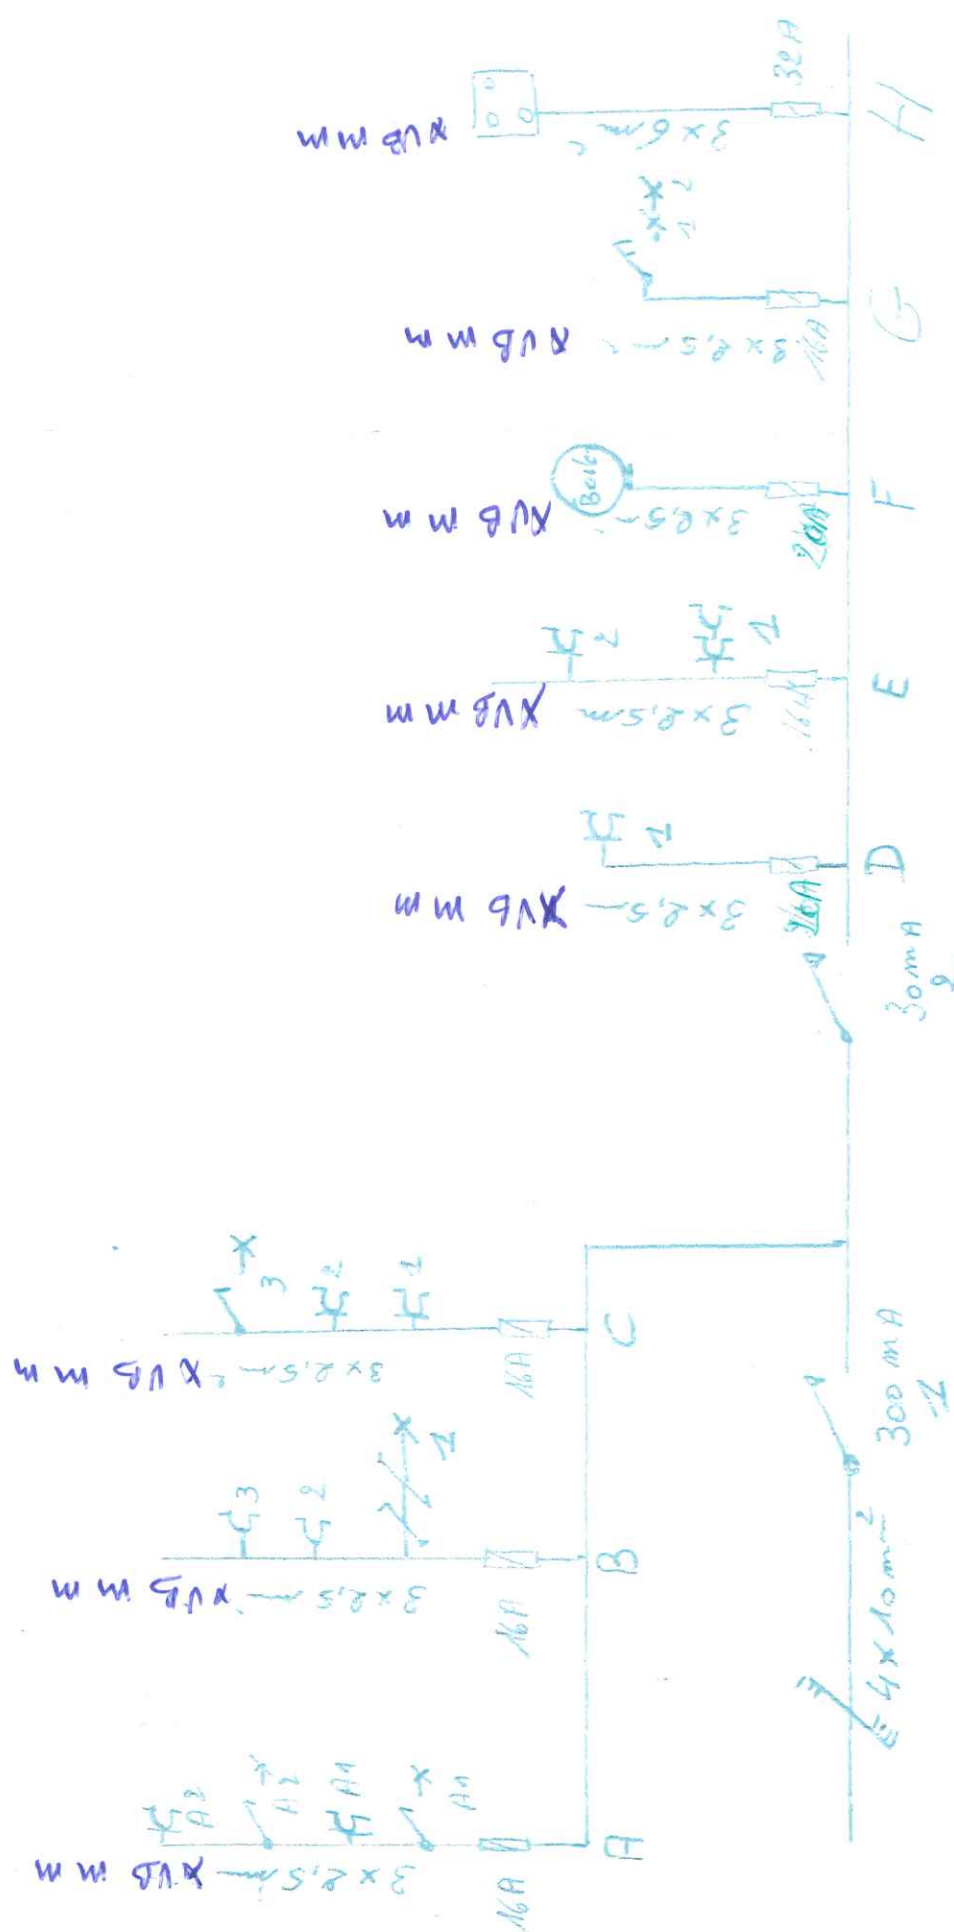 A
16A
3 x 2,5 m
XVB mm
A1
A1
A2
A2
B
16A
3 x 2,5 m
XVB mm
1
2
3
C
16A
3 x 2,5 m²
XVB mm
1
2
3
4 x 10 mm²
300 mA
1
30 mA
2
D
20A
3 x 2,5 m
XVB mm
1
E
16A
3 x 2,5 m
XVB mm
1
2
F
20A
3 x 2,5 m
XVB mm
Boiler
G
16A
3 x 2,5 m
XVB mm
1
2
H
32A
3 x 6 m²
XVB mm